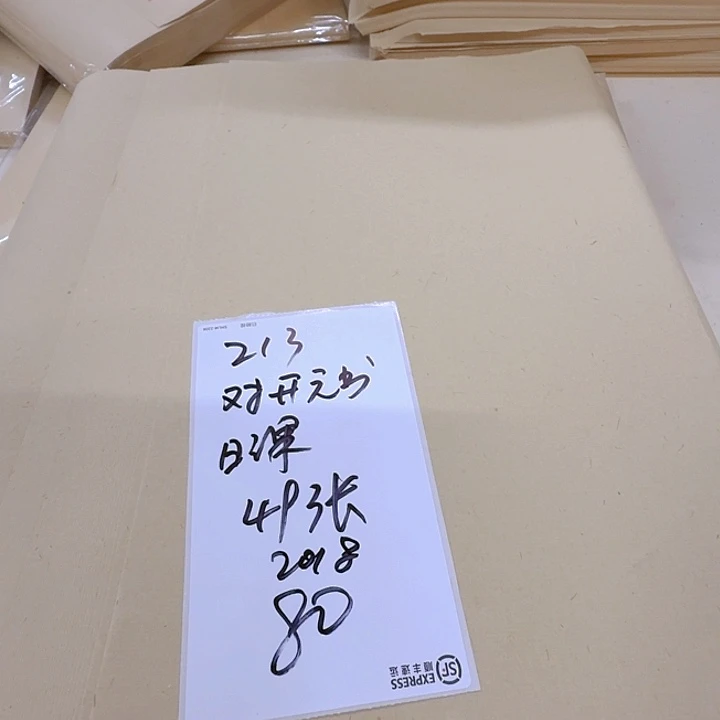 213
对开元书
日课
49张
2018
80
SF EXPRESS
顺丰速运